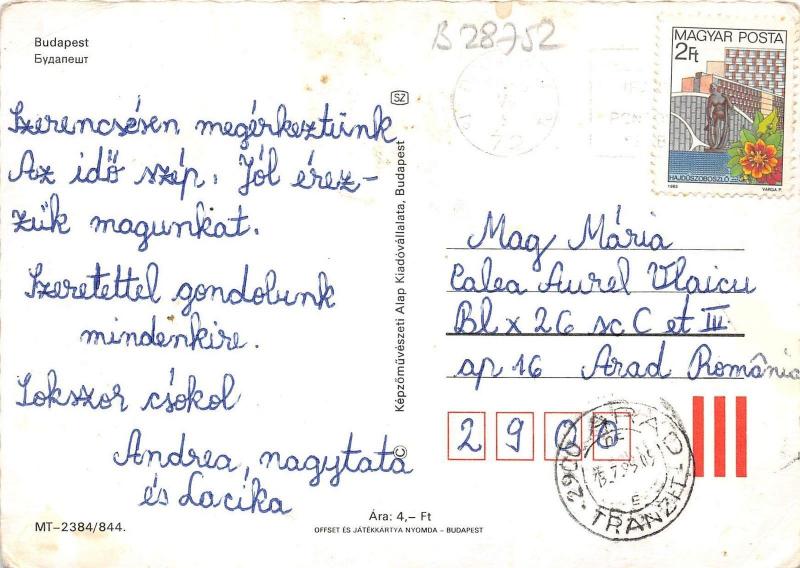 Budapest
Будапешт
B 28752
MAGYAR POSTA
2Ft
HAJDÚSZOBOSZLÓ
1983 VARGA P.
SZ
Szerencsésen megérkeztünk
Az idő szép. Jól érez-
zük magunkat.
Szeretettel gondolunk
mindenkire.
Sokszor csókol
Andrea, nagytata
és Lacika
Képzőművészeti Alap Kiadóvállalata, Budapest
Mag Mária
Calea Aurel Vlaicu
Bl x 26 sc C et III
ap 16 Arad România
2900
2900 ARAD
TRANZIT
E
MT–2384/844.
Ára: 4,– Ft
OFFSET ÉS JÁTÉKKÁRTYA NYOMDA – BUDAPEST